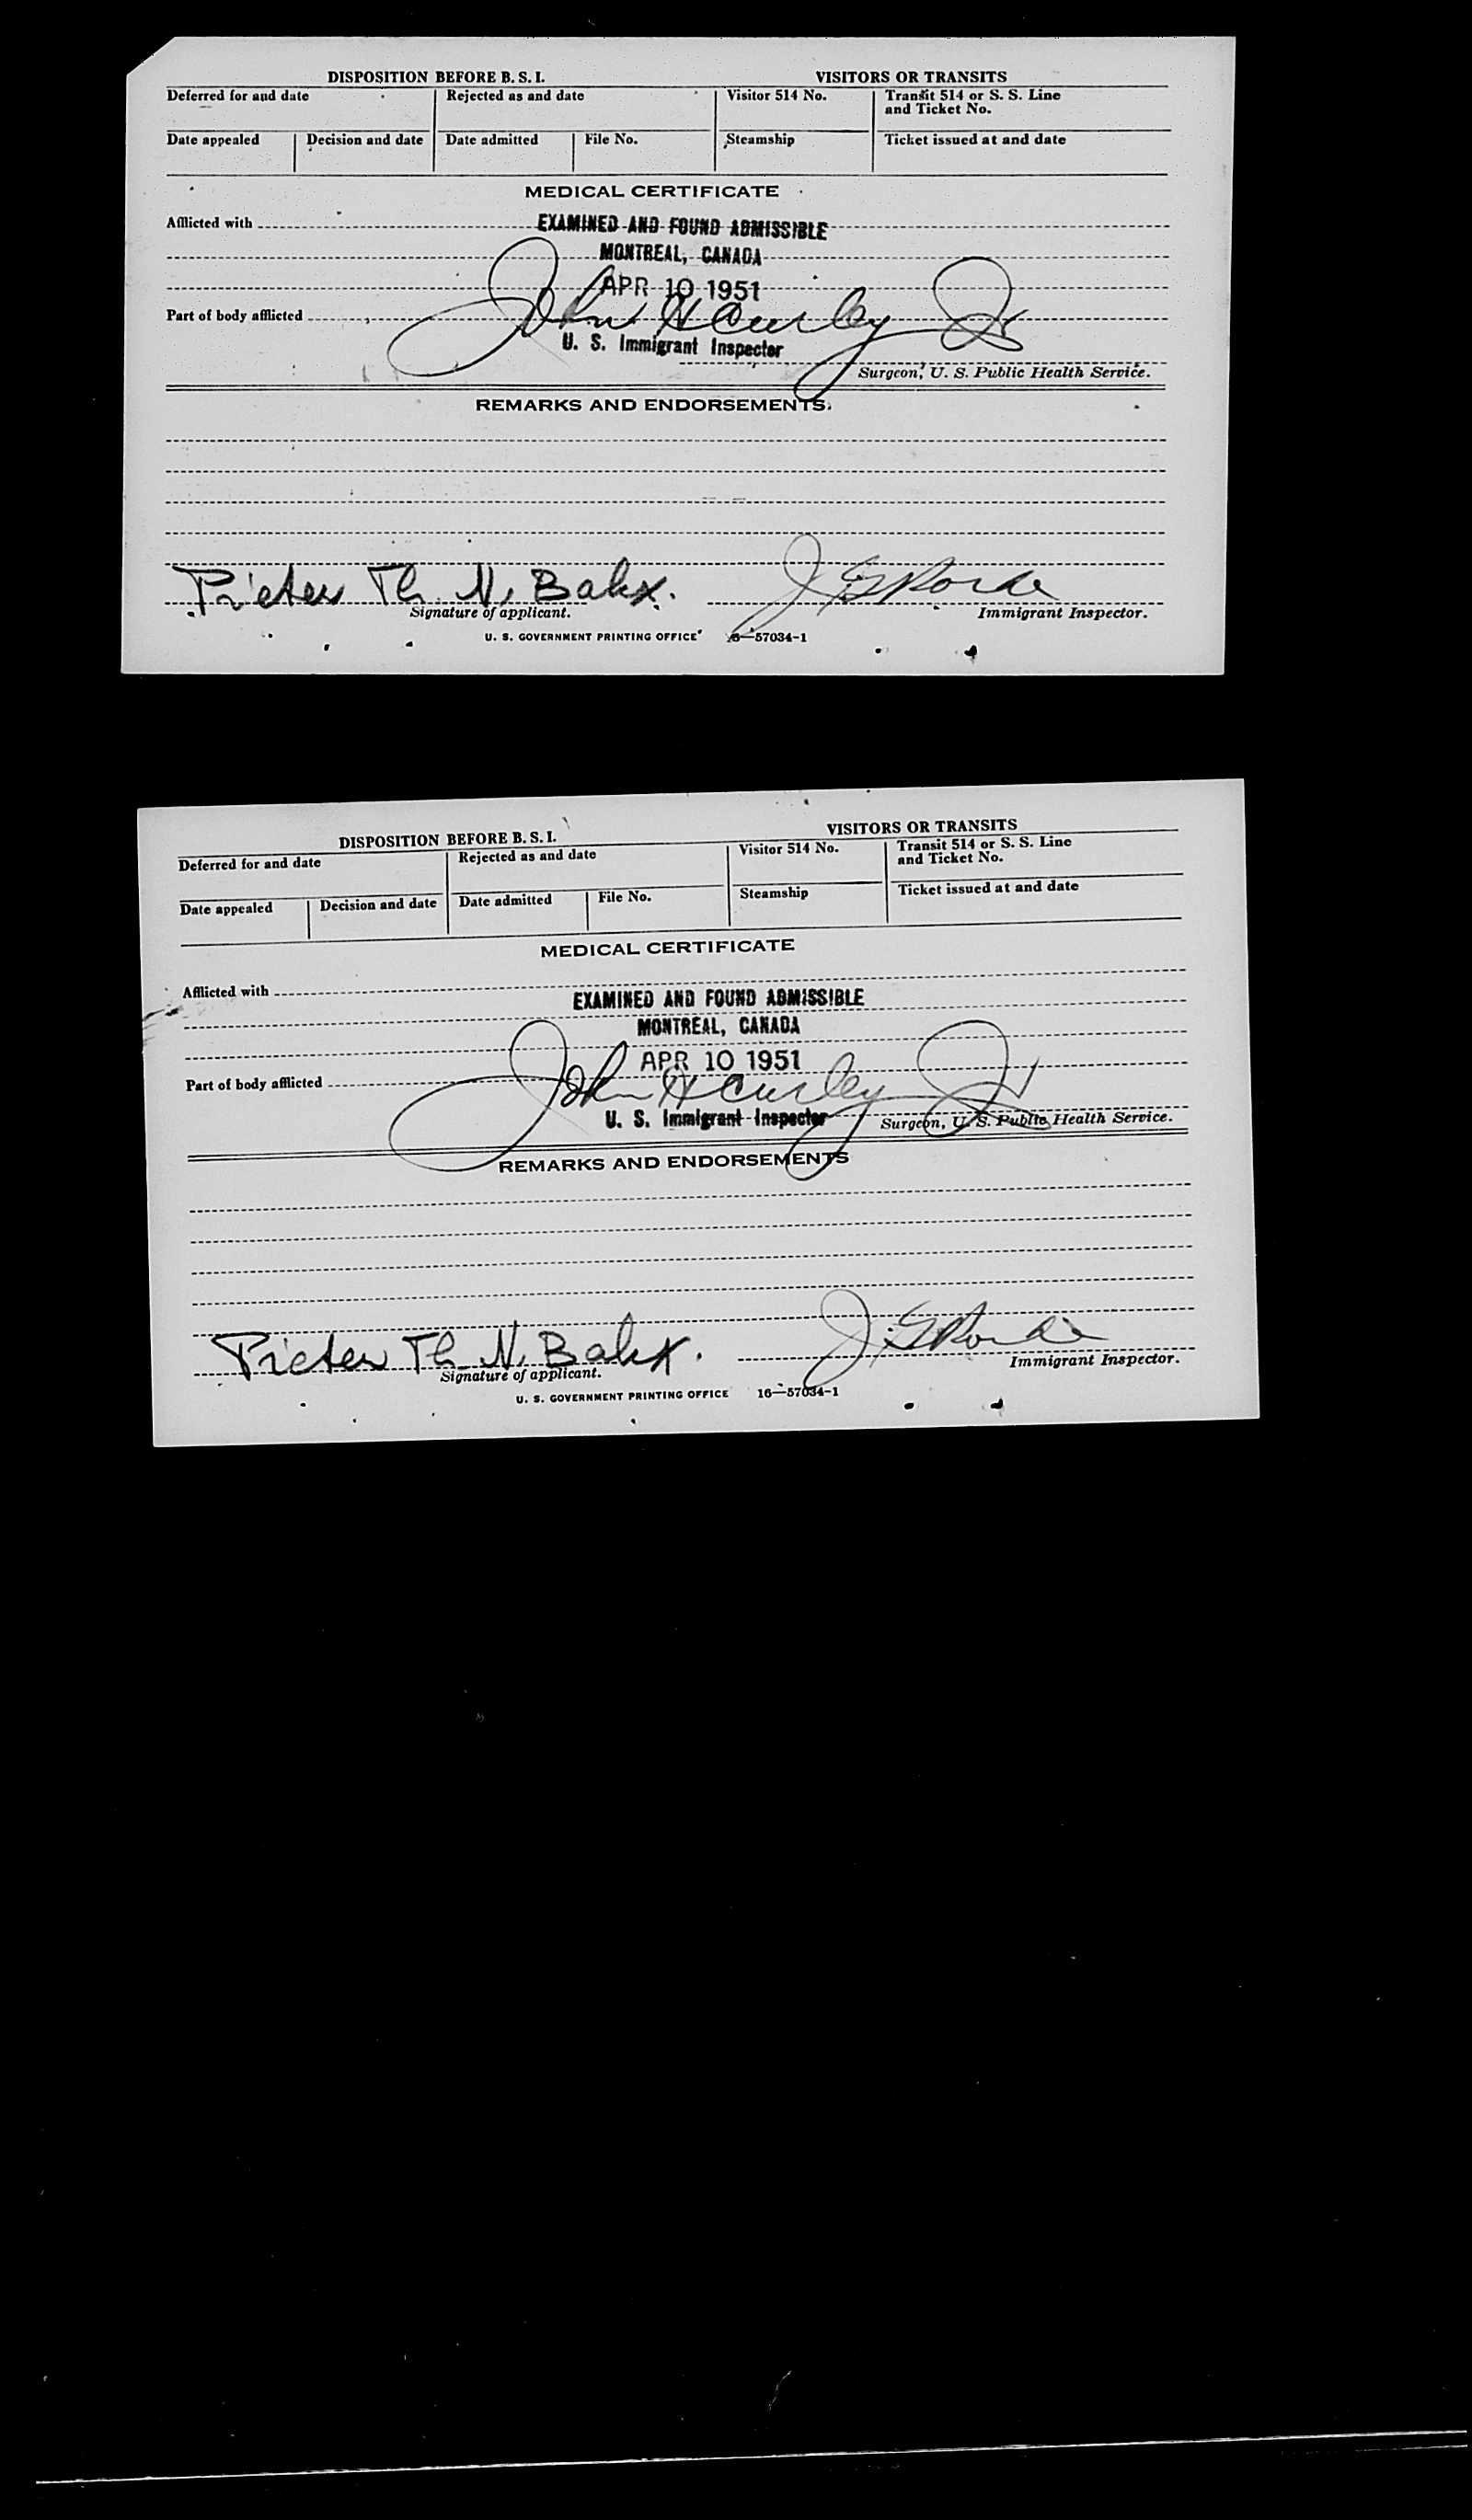 DISPOSITION BEFORE B. S. I.
VISITORS OR TRANSITS
Deferred for and date
Rejected as and date
Visitor 514 No.
Transit 514 or S. S. Line
and Ticket No.
Date appealed
Decision and date
Date admitted
File No.
Steamship
Ticket issued at and date
MEDICAL CERTIFICATE
Afflicted with
EXAMINED AND FOUND ADMISSIBLE
MONTREAL, CANADA
APR 10 1951
Part of body afflicted
John H Curley Jr
U. S. Immigrant Inspector
Surgeon, U. S. Public Health Service.
REMARKS AND ENDORSEMENTS.
Pieter Th. N. Bakx.
Signature of applicant.
Immigrant Inspector.
U. S. GOVERNMENT PRINTING OFFICE 16—57034-1
DISPOSITION BEFORE B. S. I.
VISITORS OR TRANSITS
Deferred for and date
Rejected as and date
Visitor 514 No.
Transit 514 or S. S. Line
and Ticket No.
Date appealed
Decision and date
Date admitted
File No.
Steamship
Ticket issued at and date
MEDICAL CERTIFICATE
Afflicted with
EXAMINED AND FOUND ADMISSIBLE
MONTREAL, CANADA
APR 10 1951
Part of body afflicted
John H Curley Jr
U. S. Immigrant Inspector
Surgeon, U. S. Public Health Service.
REMARKS AND ENDORSEMENTS
Pieter Th. N. Bakx.
Signature of applicant.
Immigrant Inspector.
U. S. GOVERNMENT PRINTING OFFICE 16—57034-1